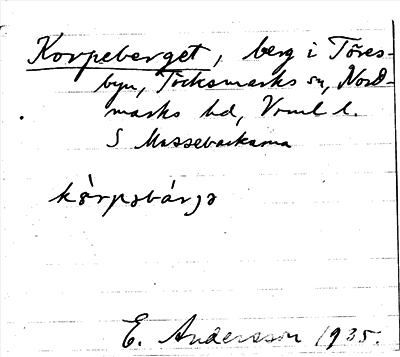 Korpeberget, berg i Töres-
byn, Töcksmarks sn, Nord-
marks hd, Vrml l.
S Mossebackarna
kòrpəbárjə
E. Andersson 1935.